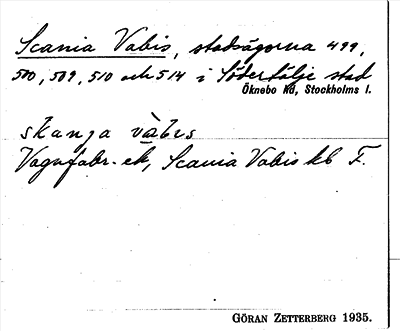 Scania Vabis, stadsägorna 499,
500, 509, 510 och 514 i Södertälje stad
Öknebo hd, Stockholms l.
skanja vàbıs
Vagnfabr. ek, Scania Vabis kb F.
GÖRAN ZETTERBERG 1935.